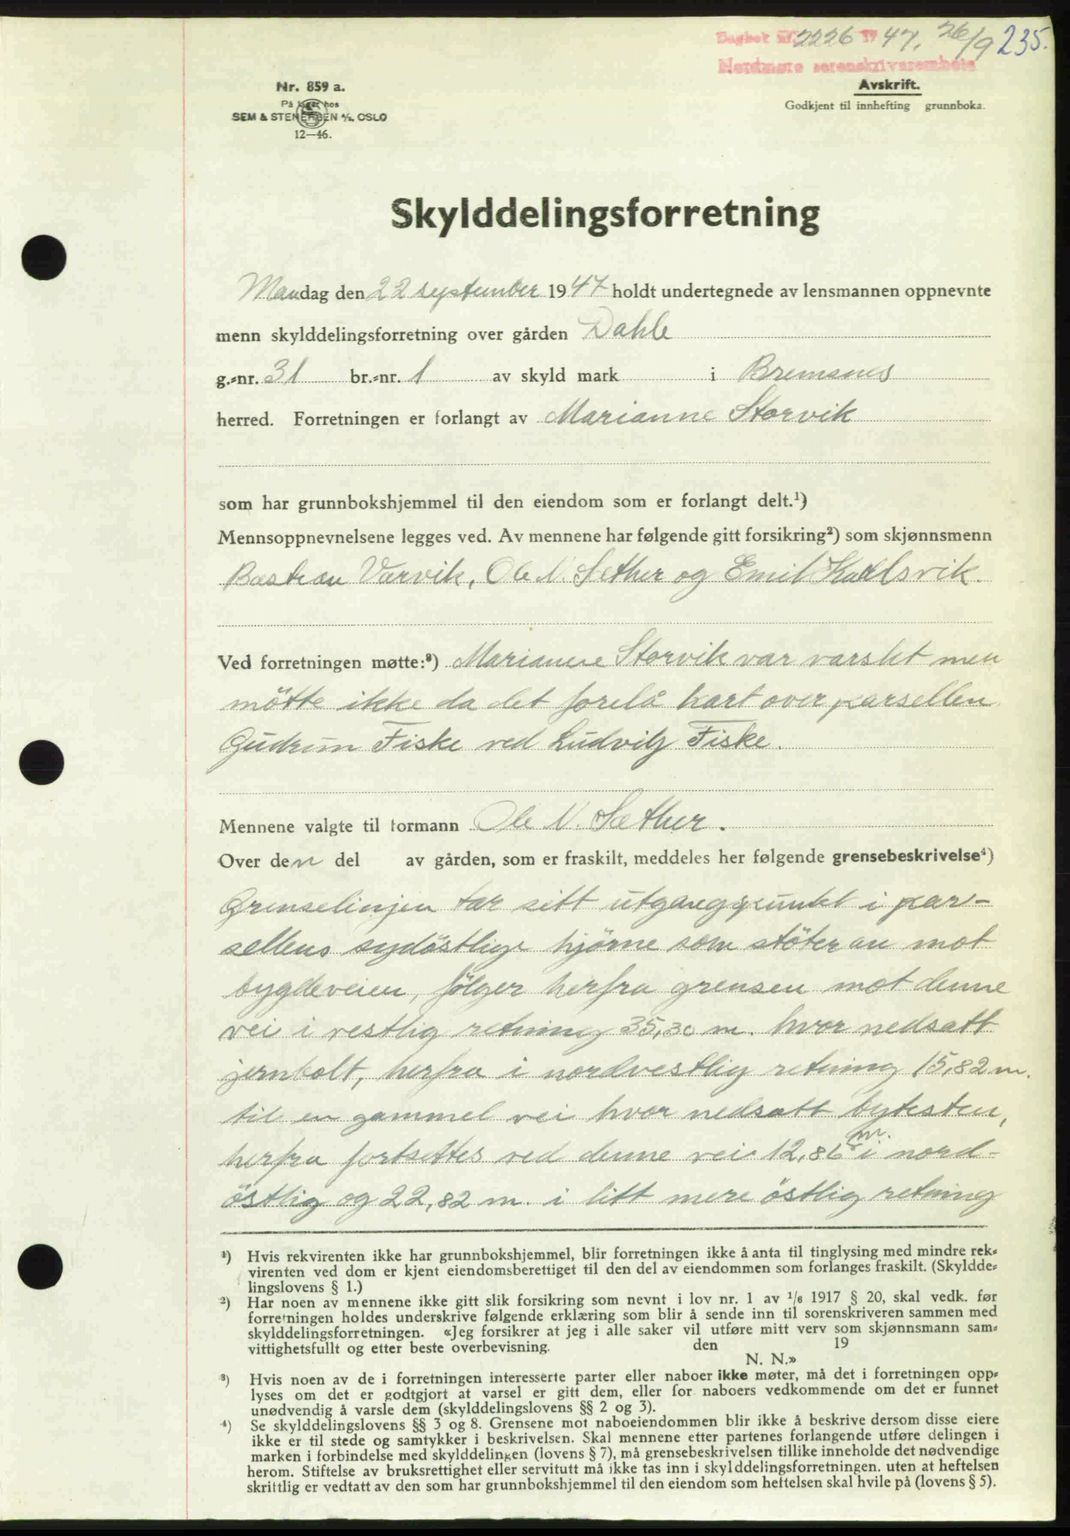 Dagbok nr. 2226 1947, 26/9 235.
Nordmøre sorenskriverembete
Nr. 859 a.
På lager hos
SEM & STENERSEN A/S, OSLO
12—46.
Avskrift.
Godkjent til innhefting grunnboka.
Skylddelingsforretning
Mandag den 22 september 1947 holdt undertegnede av lensmannen oppnevnte
menn skylddelingsforretning over gården Dahle
g.-nr. 31 br.-nr. 1 av skyld mark i Bremsnes
herred. Forretningen er forlangt av Marianne Storvik
som har grunnbokshjemmel til den eiendom som er forlangt delt.¹)
Mennsoppnevnelsene legges ved. Av mennene har følgende gitt forsikring²) som skjønnsmenn
Bastian Varvik, Ole N. Sæther og Emil Karlsvik.
Ved forretningen møtte:³) Marianne Storvik var varslet men
mötte ikke da det forelå kart over parsellen
Gudrun Fiske ved Ludvig Fiske.
Mennene valgte til formann Ole N. Sæther.
Over den del av gården, som er fraskilt, meddeles her følgende grensebeskrivelse⁴)
Grenselinjen tar sitt utgangspunkt i par-
sellens sydöstlige hjörne som stöter an mot
bygdeveien, fölger herfra grensen mot denne
vei i vestlig retning 35,30 m. hvor nedsatt
jernbolt, herfra i nordvestlig retning 15,82 m.
til en gammel vei hvor nedsatt bytesten,
herfra fortsettes ved denne vei 12,86 m. i nord-
östlig og 22,82 m. i litt mere östlig retning
¹) Hvis rekvirenten ikke har grunnbokshjemmel, blir forretningen ikke å anta til tinglysing med mindre rek-
virenten ved dom er kjent eiendomsberettiget til den del av eiendommen som forlanges fraskilt. (Skyldde-
lingslovens § 1.)
²) Har noen av mennene ikke gitt slik forsikring som nevnt i lov nr. 1 av 1/6 1917 § 20, skal vedk. før
forretningen holdes underskrive følgende erklæring som blir å sende inn til sorenskriveren sammen med
skylddelingsforretningen. «Jeg forsikrer at jeg i alle saker vil utføre mitt verv som skjønnsmann sam-
vittighetsfullt og etter beste overbevisning. den 19
N. N.»
³) Hvis noen av de i forretningen interesserte parter eller naboer ikke møter, må det i forretningen opp-
lyses om det er godtgjort at varsel er gitt dem, eller for naboers vedkommende om det er funnet
unødvendig å varsle dem (skylddelingslovens §§ 2 og 3).
⁴) Se skylddelingslovens §§ 3 og 8. Grensene mot naboeiendommen blir ikke å beskrive dersom disse eiere
ikke er til stede og samtykker i beskrivelsen. Skal mennene etter partenes forlangende utføre delingen i
marken i forbindelse med skylddelingen (lovens § 7), må grensebeskrivelsen tillike inneholde det nødvendige
herom. Stiftelse av bruksrettighet eller servitutt må ikke tas inn i skylddelingsforretningen, uten at heftelsen
skriftlig er vedtatt av den som har grunnbokshjemmel til den eiendom som heftelsen skal hvile på (lovens § 5).